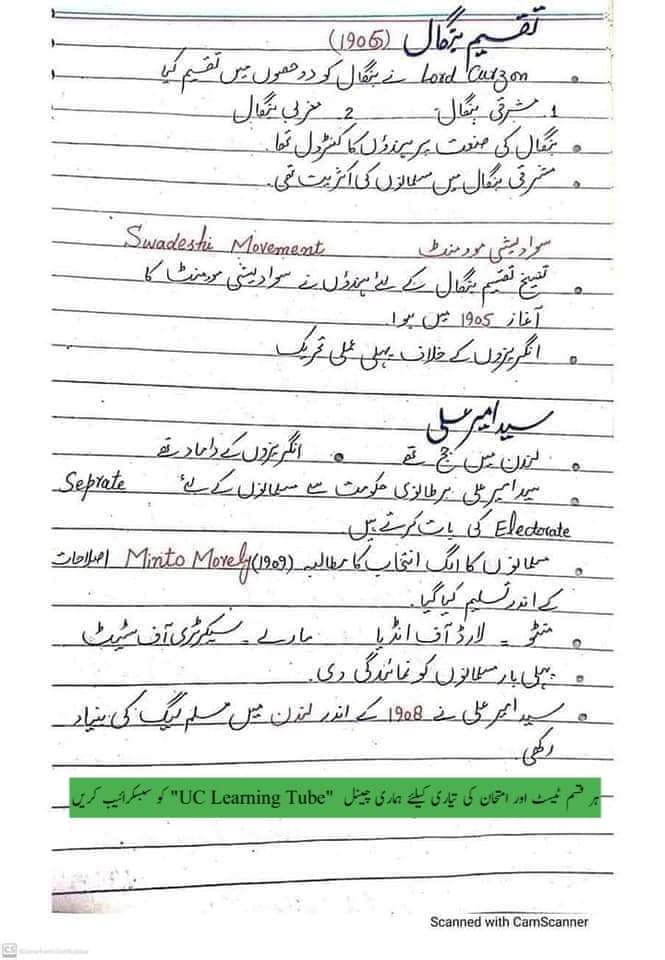 تقسیم بنگال (1905)
Lord Curzon نے بنگال کو دو حصوں میں تقسیم کیا
1. مشرقی بنگال 2 مغربی بنگال
بنگال کی صنعت پر ہندؤں کا کنٹرول تھا.
مشرقی بنگال میں مسلمانوں کی اکثریت تھی.
سوادیشی موومنٹ Swadeshi Movement
تنسیخ تقسیم بنگال کے لئے ہندؤں نے سوادیشی موومنٹ کا
آغاز 1905 میں ہوا.
انگریزوں کے خلاف پہلی عملی تحریک
سید امیر علی
لندن میں جج تھے • انگریزوں کے داماد تھے
سید امیر علی برطانوی حکومت سے مسلمانوں کے لئے Seprate
Electorate کی بات کرتے ہیں
مسلمانوں کا الگ انتخاب کا مطالبہ Minto Morely (1909) اصلاحات
کے اندر تسلیم کیا گیا.
منٹو - لارڈ آف انڈیا مارلے - سیکرٹری آف سٹیٹ
پہلی بار مسلمانوں کو نمائندگی دی.
سید امیر علی نے 1908 کے اندر لندن میں مسلم لیگ کی بنیاد
رکھی
ہر قسم ٹیسٹ اور امتحان کی تیاری کیلئے ہماری چینل "UC Learning Tube" کو سبسکرائیب کریں
Scanned with CamScanner
CS